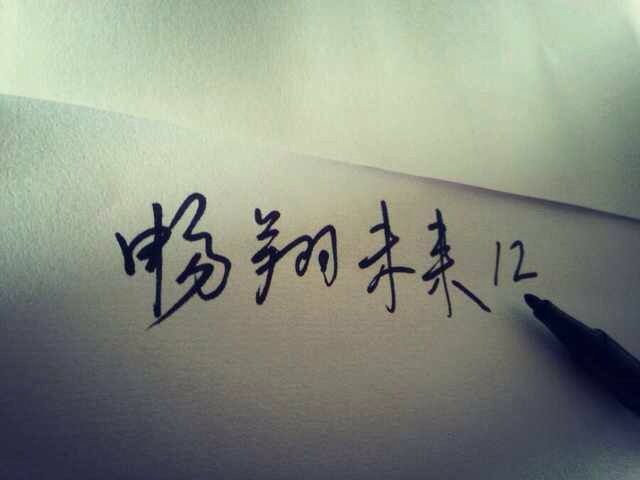 畅翔未来12